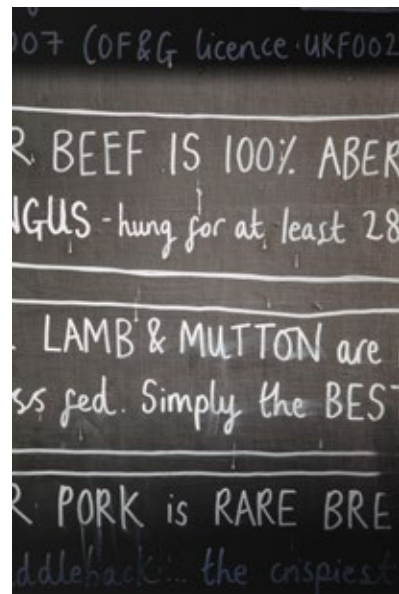 007 (OF&G licence · UKF002
R BEEF IS 100% ABER
NGUS - hung for at least 28
LAMB & MUTTON are
ss fed. Simply the BEST
R PORK is RARE BRE
ddleback... the crispiest